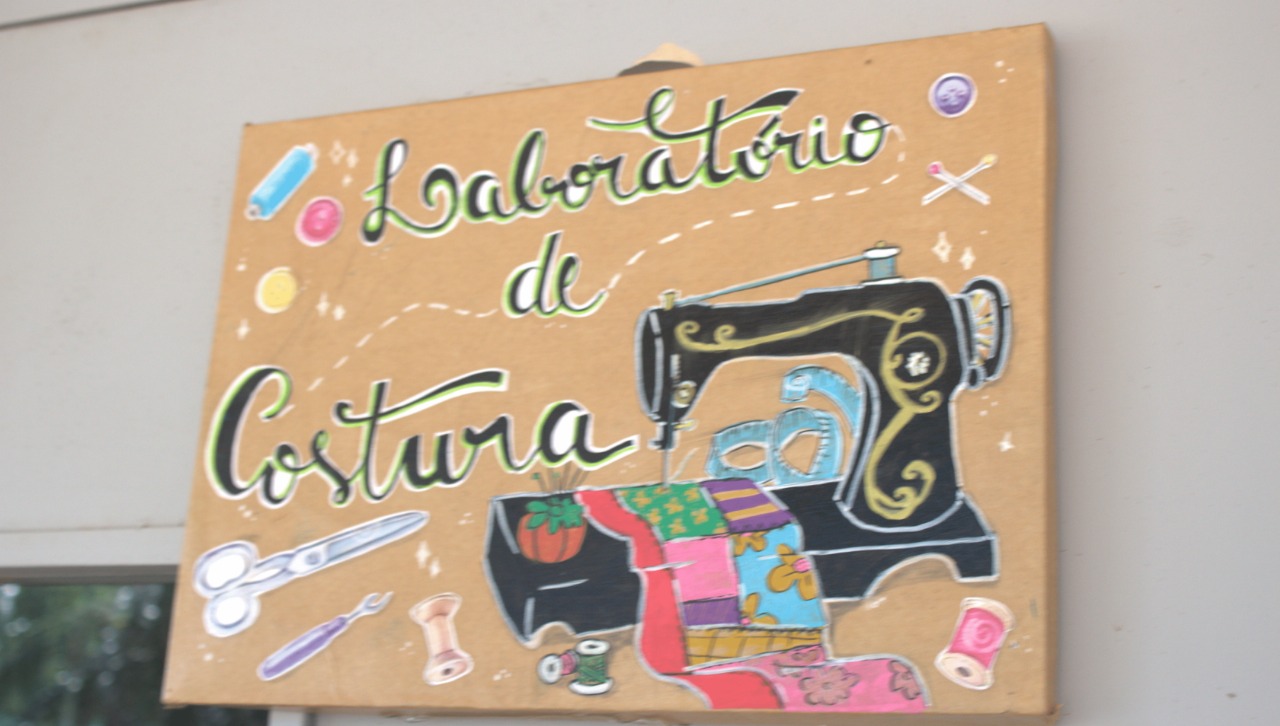 Laboratório
de
Costura